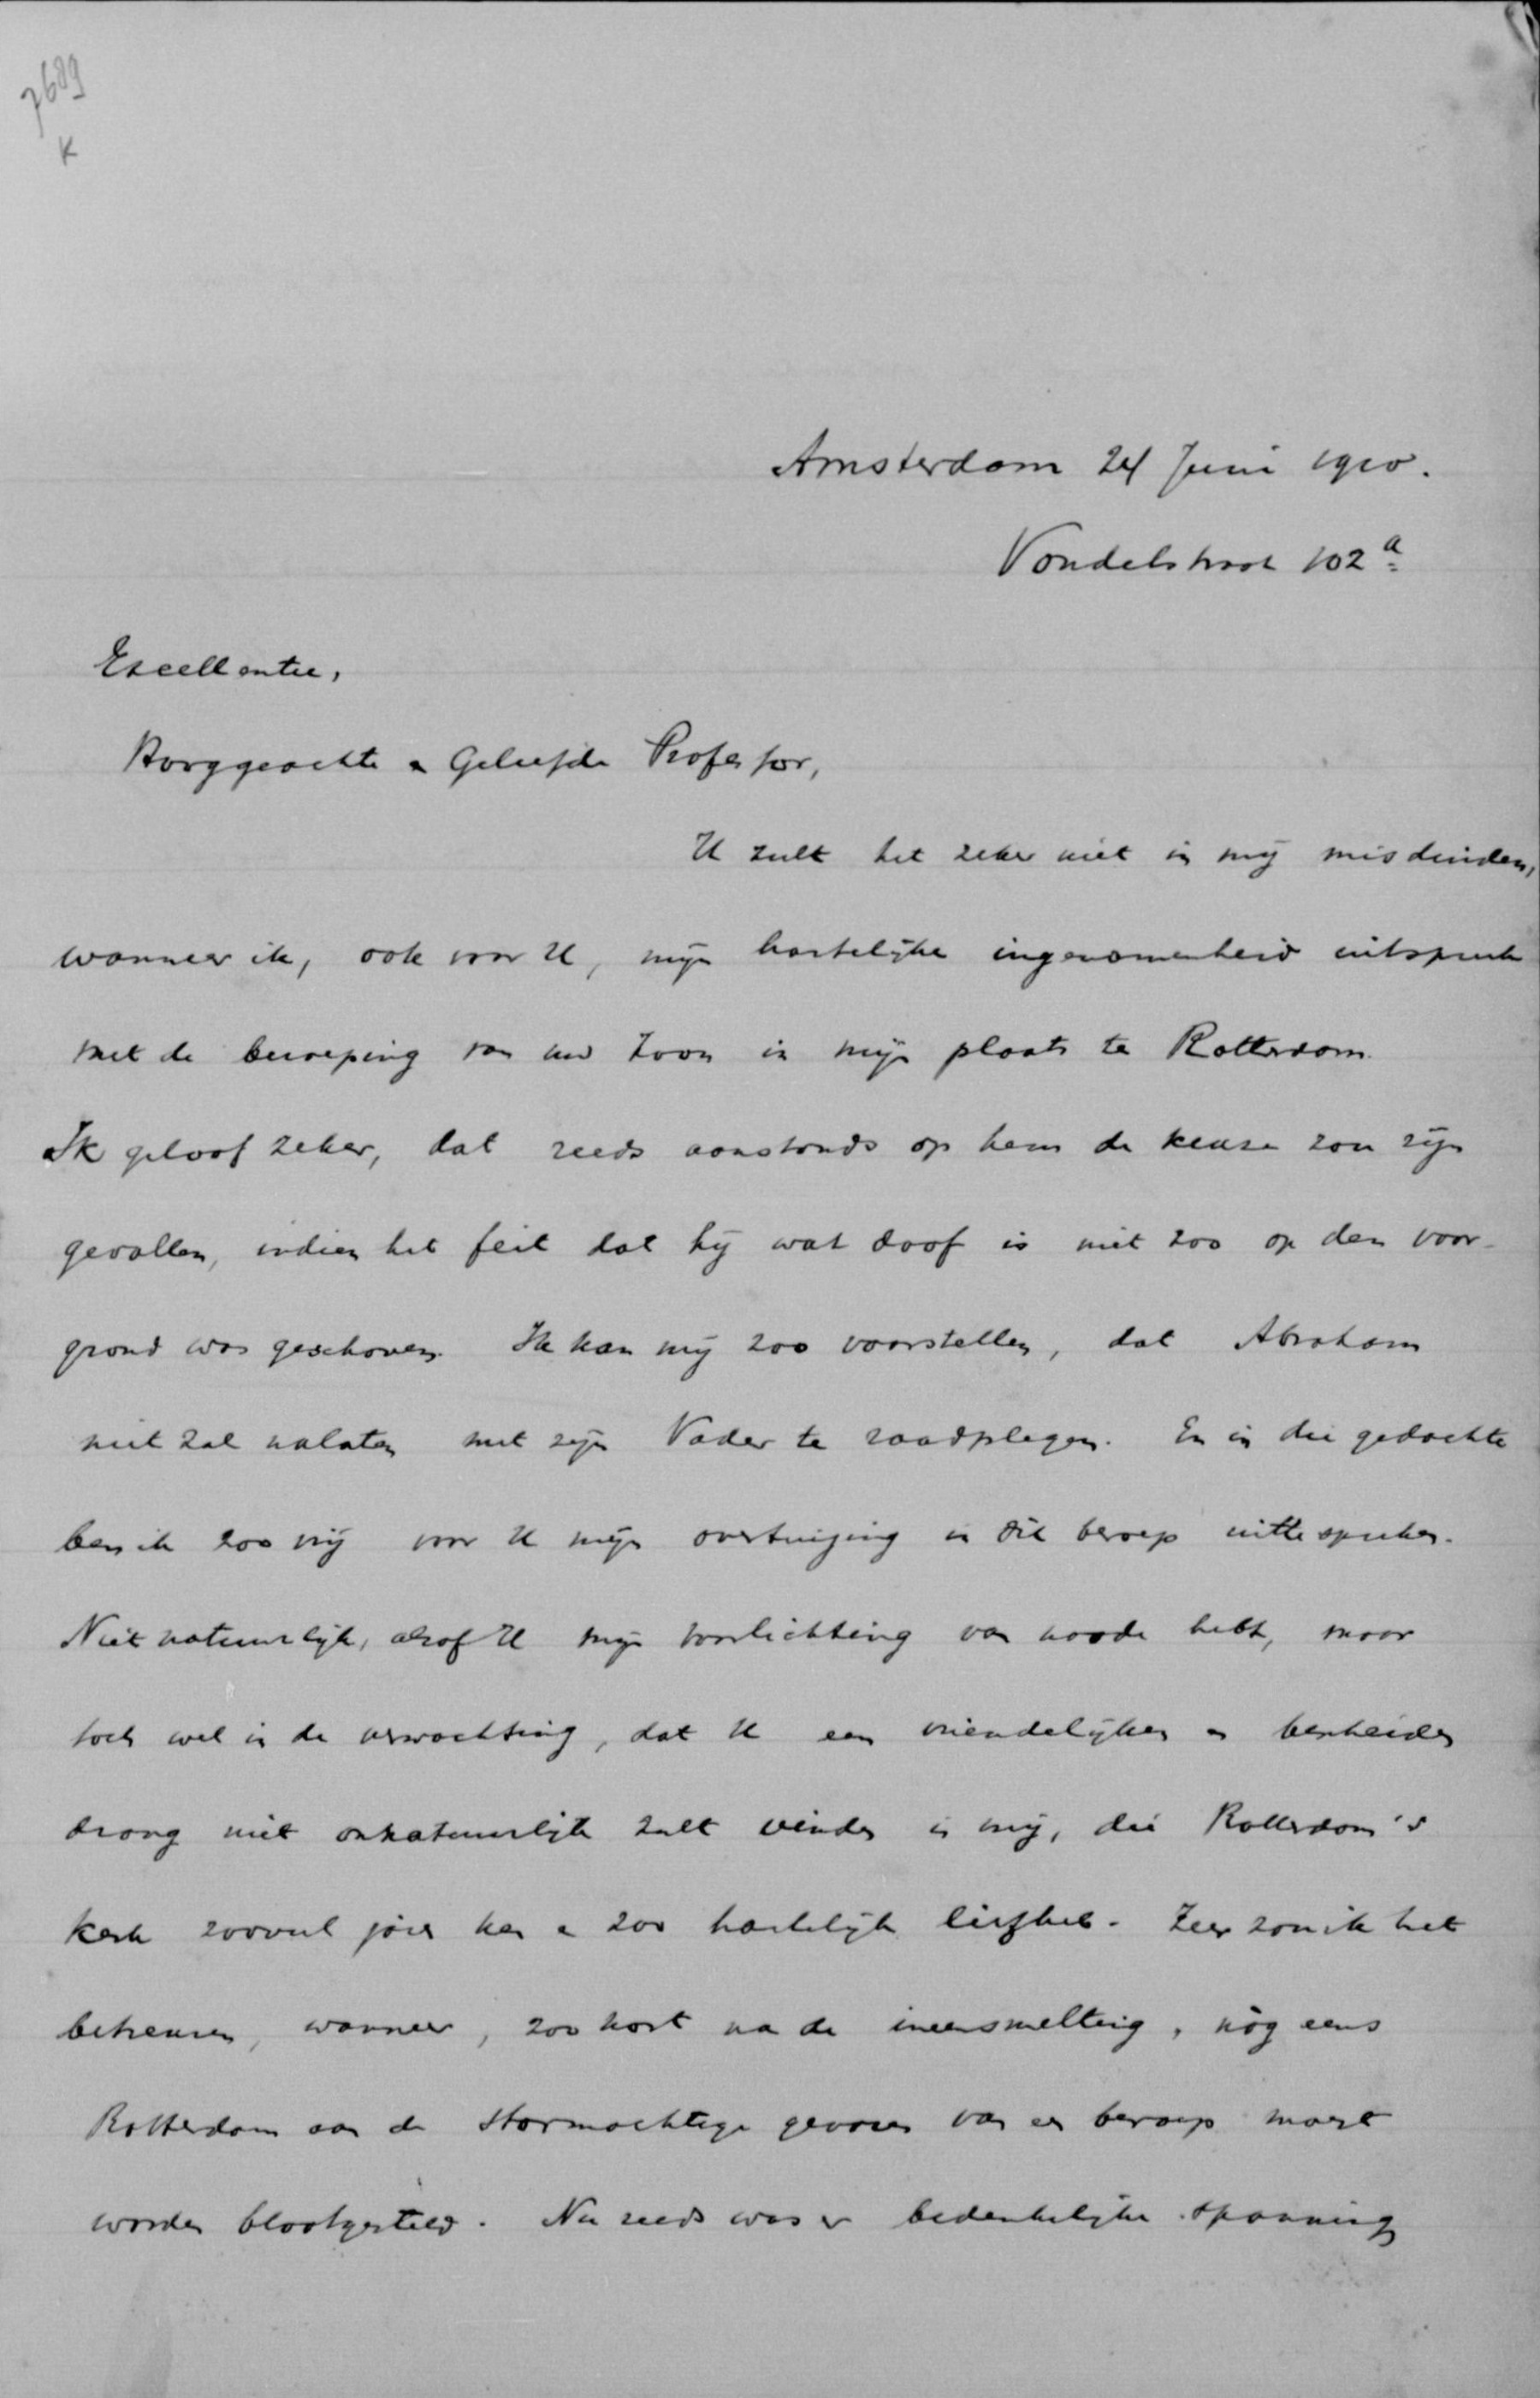 7689
K
Amsterdam 24 Juni 1910.
Vondelstraat 102a
Excellentie,
Hooggeachte & Geliefde Professor,
U zult het zeker niet in mij misduiden,
wanneer ik, ook voor U, mijn hartelijke ingenomenheid uitspreek
met de beroeping van uw Zoon in mijn plaats te Rotterdam.
Ik geloof zeker, dat reeds aanstonds op hem de keuze zou zijn
gevallen, indien het feit dat hij wat doof is niet zoo op den voor-
grond was geschoven. Ik kan mij zoo voorstellen, dat Abraham
niet zal nalaten met zijn Vader te raadplegen. En in die gedachte
ben ik zoo vrij voor U mijn overtuiging in dit beroep uit te spreken.
Niet natuurlijk, alsof U mijn voorlichting van noode hebt, maar
toch wel in de verwachting, dat U een vriendelijken en bescheiden
drang niet onnatuurlijk zult vinden in mij, die Rotterdam's
kerk zooveel jaren ken & zoo hartelijk liefheb. Zeer zou ik het
betreuren, wanneer, zoo kort na de ineensmelting, nòg eens
Rotterdam aan de stormachtige gevaren van een beroep moest
worden blootgesteld. Nu reeds was er bedenkelijke spanning